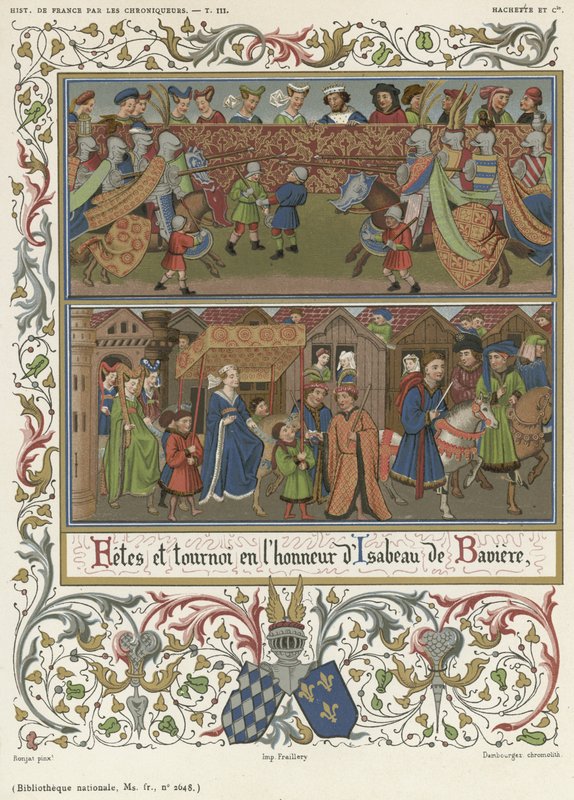 HIST. DE FRANCE PAR LES CHRONIQUEURS. — T. III.
HACHETTE ET Cie.
Fêtes et tournoi en l'honneur d'Isabeau de Bavière,
Ronjat pinxt
Imp. Fraillery
Dambourgez chromolith.
(Bibliothèque nationale, Ms. fr., n° 2648.)